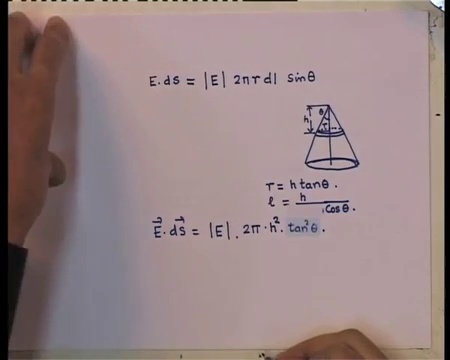 E. ds = |E| 2πr dl sinθ
θ
h
r
r = h tanθ.
l = h / cosθ.
E⃗. dS⃗ = |E|. 2π·h². tan²θ.